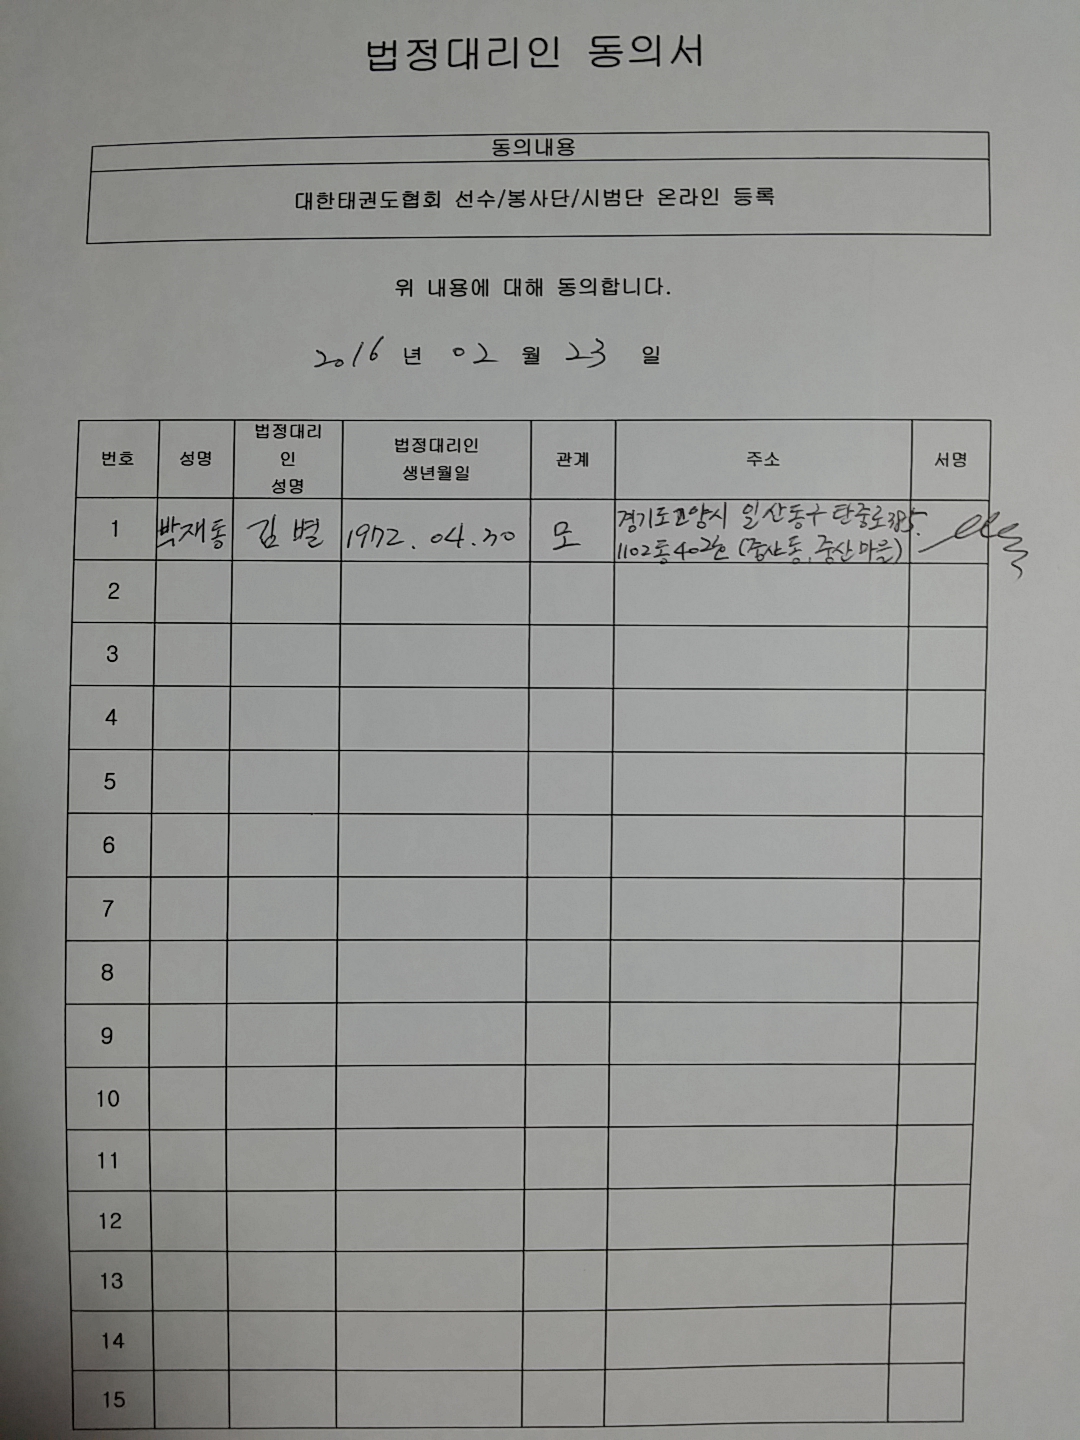 법정대리인 동의서
동의내용
대한태권도협회 선수/봉사단/시범단 온라인 등록
위 내용에 대해 동의합니다.
2016 년 02 월 23 일
번호 성명 법정대리인 성명 법정대리인 생년월일 관계 주소 서명
1 박재통 김별 1972.04.30 모 경기도고양시 일산동구 탄중로385.
1102동402호 (중산동,중산마을)
2
3
4
5
6
7
8
9
10
11
12
13
14
15